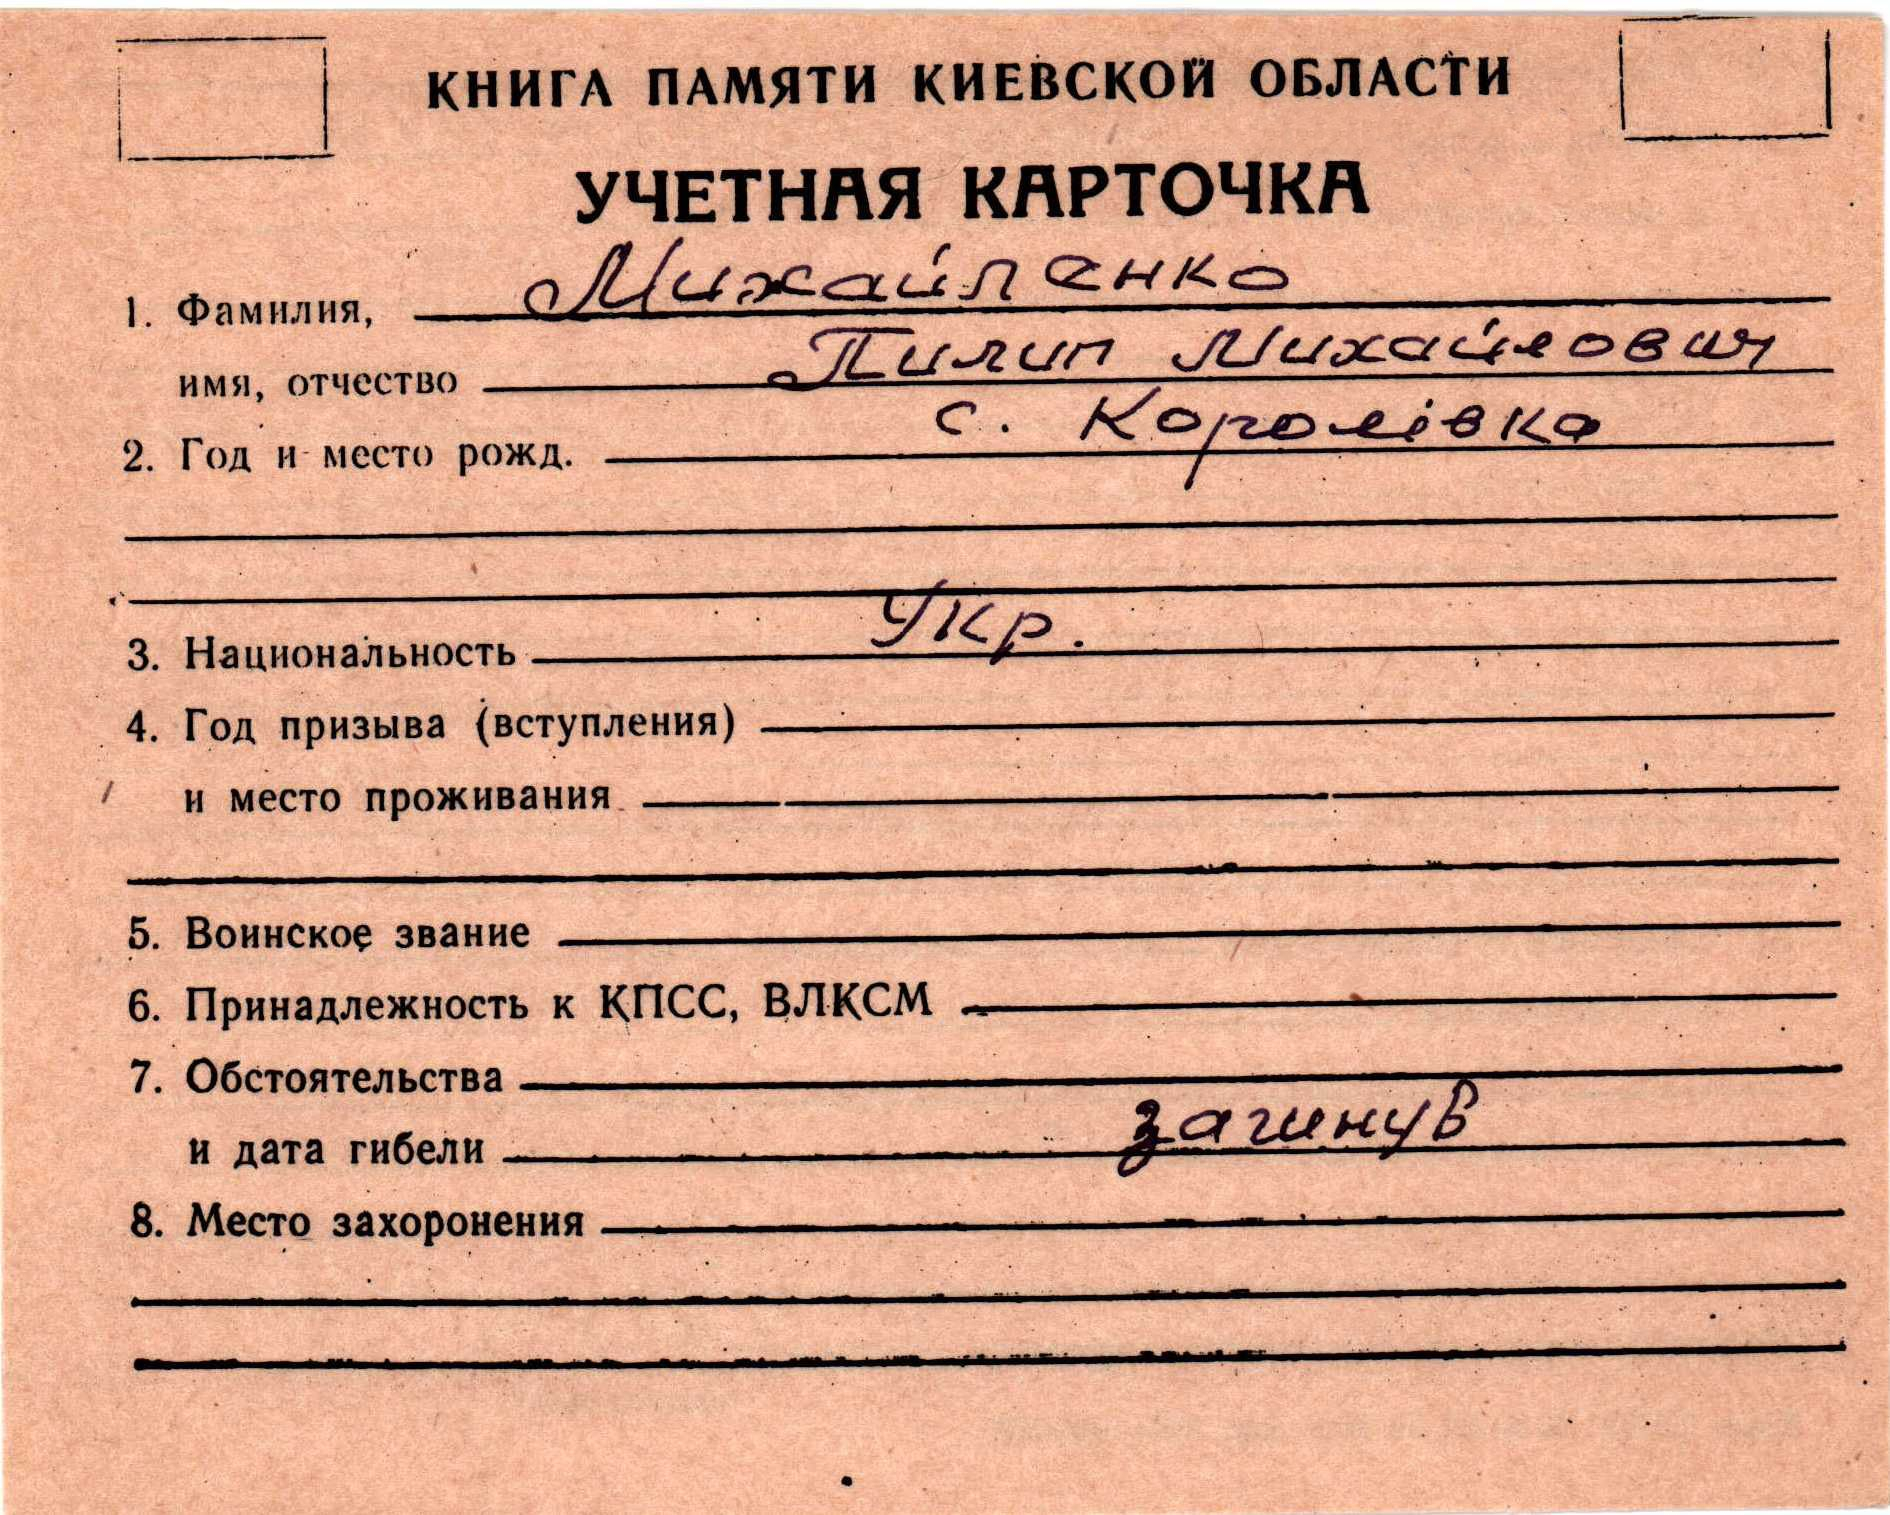 КНИГА ПАМЯТИ КИЕВСКОЙ ОБЛАСТИ
УЧЕТНАЯ КАРТОЧКА
1. Фамилия, Михайленко
имя, отчество Пилип Михайлович
2. Год и место рожд. с. Королівка
3. Национальность Укр.
4. Год призыва (вступления)
и место проживания
5. Воинское звание
6. Принадлежность к КПСС, ВЛКСМ
7. Обстоятельства
и дата гибели загинув
8. Место захоронения